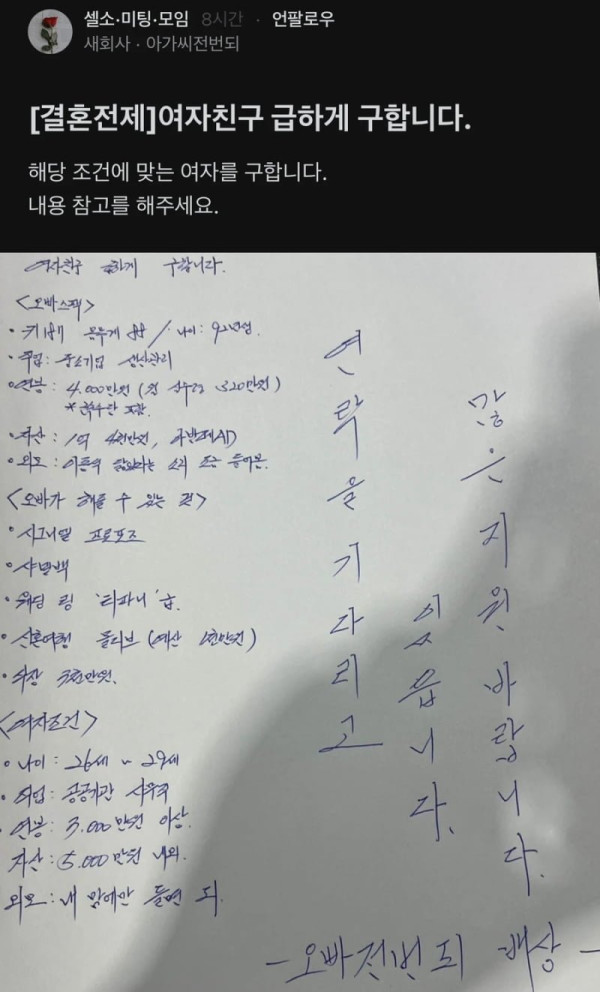 셀소·미팅·모임 8시간 · 언팔로우
새회사 · 아가씨전번되
[결혼전제]여자친구 급하게 구합니다.
해당 조건에 맞는 여자를 구합니다.
내용 참고를 해주세요.
여자친구 급하게 구합니다.
<오빠스펙>
나이: 92년생.
• 직업: 중소기업 생산관리
• 연봉: 4,000만원 (월 실수령 320만원)
* 특수당 포함.
• 자산: 1억 4천만원, 아반떼AD
• 외모: 이동욱 닮았다는 소리 조금 들어봄.
<오빠가 해줄 수 있는 것>
• 시그니엘 프로포즈
• 샤넬백
• 웨딩 링 '티파니'급.
• 신혼여행 몰디브 (예산 1천만원)
<여자조건>
• 나이: 26세 ~ 29세
• 직업: 공공기관 사무직
• 연봉: 3,000만원 이상.
자산: 5,000만원 내외.
외모: 내 맘에만 들면 돼.
많은 지원 바랍니다.
연락을 기다리고
있읍니다.
- 오빠전번되 배상 -